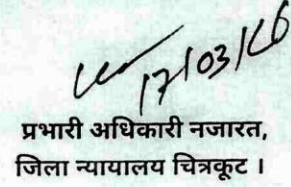 17/03/26
प्रभारी अधिकारी नजारत,
जिला न्यायालय चित्रकूट ।